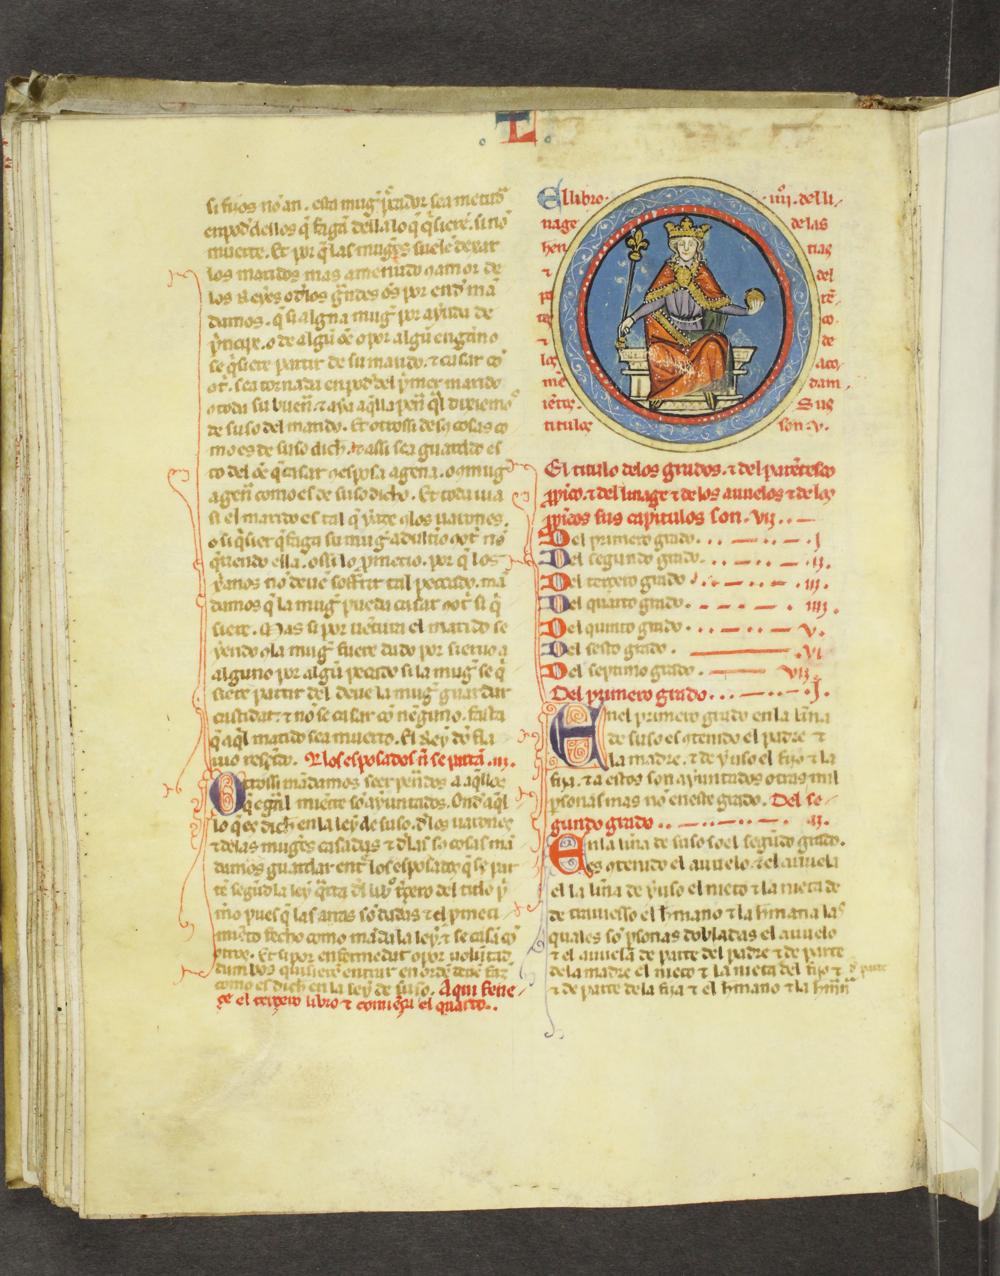 L
si fijos no an. esta mugr̃ peador sea metuda
en pod̃ dellos q̃ fagã della lo q̃ q̃sierẽ. si no
muerte. Et por q̃ las mugr̃s suelẽ dexar
los maridos mas amenudo
los Reyes o dlos grãdes oẽs por end mã
damos. q̃ si alguna mugr̃ por ayuda de
p̃ncipe. o de algũ oẽ o por algũ engãno
se q̃siere partir de su marido. ⁊ casar cõ
ot̃. sea tornada en pod̃ del p̃mer marido
de suso del marido. Et otrossi destas cosas co
mo es de suso dich̃. ⁊ assi sea guardado es
to del oẽ q̃ casar esposa agena. o mugr̃
agenã como es de suso dicho. Et toda uia
si el marido es tal q̃ yaze los uarones.
o si q̃sier q̃ faga su mugr̃ adult̃io ot̃ no
q̃riendo ella. o si lo p̃metio. por q̃ los
xp̃ianos no deuẽ soffrir tal peccado. mã
damos q̃ la mugr̃ pueda casar ot̃ si q̃
siere. Mas si por uẽtura el marido se
yendo ella mugr̃ fuere dado por sieruo a
alguno por algũ peccado si la mugr̃ se q̃
siere partir del deue la mugr̃ guardar
castidat. ⁊ no se casar cõ nẽguno. fasta
q̃ aq̃l marido sea muerto. El Rey dõ fla
uio resçido. Q̃ los esposados ñ se partã. .iij.
Otrossi mãdamos seer pẽdos a aq̃llos
q̃ egual miẽtre sõ ayuntados. Ond aq̃l
lo q̃ es dich̃ en la ley de suso. dlos uarones
⁊ delas mugr̃s casadas ⁊ dlas so cosas mã
damos guardar ent̃ los esposados q̃ se par
tẽ segũd la ley q̃rta dl lib̃ t̃çero del titlo p̃
m̃o pues q̃ las arras sõ dadas ⁊ el p̃meti
miẽto fecho como mãda la ley. ⁊ se casã cõ
otros. Et si por enfermedat o por uolũtad
dambos quisierẽ entrar en ordẽ deue faz̃
como es dich̃ en la ley de suso. Aqui fene
çe el terçero libro ⁊ comiẽça el quarto.
El libro .iiij. del li
nage de las
hen
⁊ del
de
aco
me dam
iẽtos. Sus
titulos son .v.
El titulo delos grados. ⁊ del parẽtesco
p̃pico. ⁊ del linage ⁊ de los auuelos ⁊ de los
p̃picos sus capitulos son. vij.
Del primero grado. I
Del segundo grado. ij.
Del terçero grado iij.
Del quarto grado. iiij.
Del quinto grado. v.
Del sesto grado. vi
Del septimo grado. vij.
Del primero grado. .I.
Enel primero grado en la liña
de suso es cõtenido el padre ⁊
la madre. ⁊ de yuso el fijo ⁊ la
fija. ⁊ a estos son ayuntados otras mil
p̃sonas mas no en este grado. Del se
gundo grado .ij.
Enla liña de suso so el segũdo grado.
es cõtenido el auuelo. ⁊ el auuela
el la liña de yuso el nieto ⁊ la nieta de
de trauiesso el h̃mano ⁊ la h̃mana las
quales sõ p̃sonas dobladas el auuelo
⁊ el auuela de parte del padre ⁊ de parte
dela madre el nieto ⁊ la nieta del fijo ⁊ d̃ parte
⁊ de parte dela fija ⁊ el h̃mano ⁊ la h̃mña